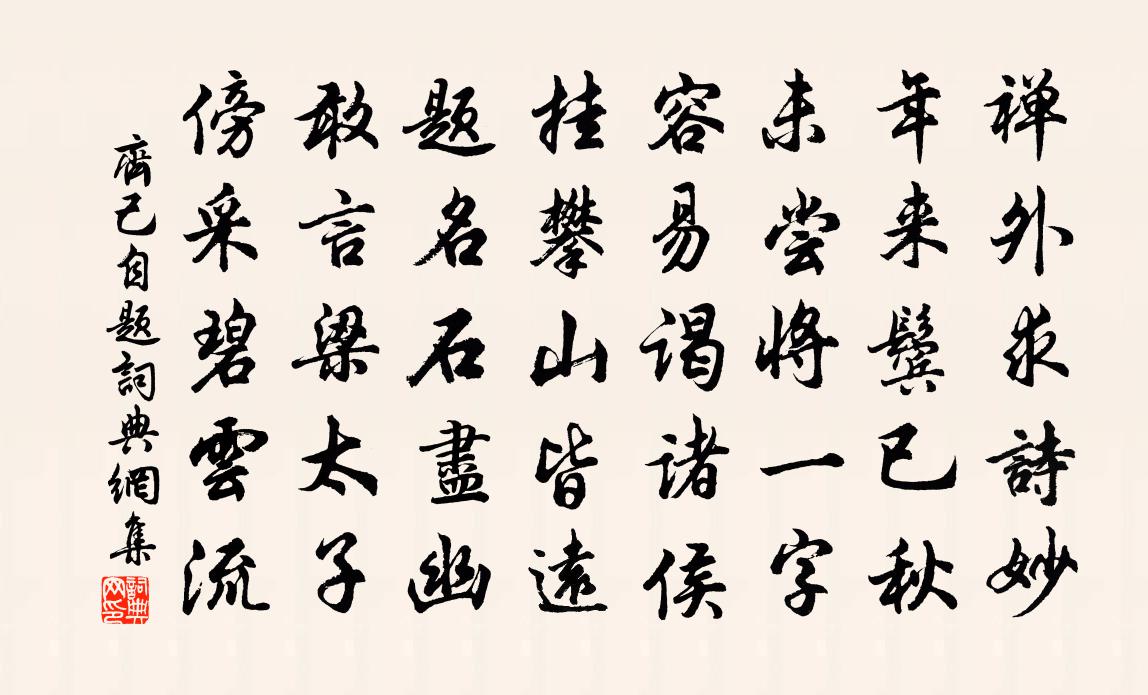 禅外求詩妙
年来鬓已秋
未尝將一字
容易谒诸侯
挂攀山皆遠
题名石盡幽
敢言梁太子
傍采碧雲流
齊己自题詞典網集
詞典网印